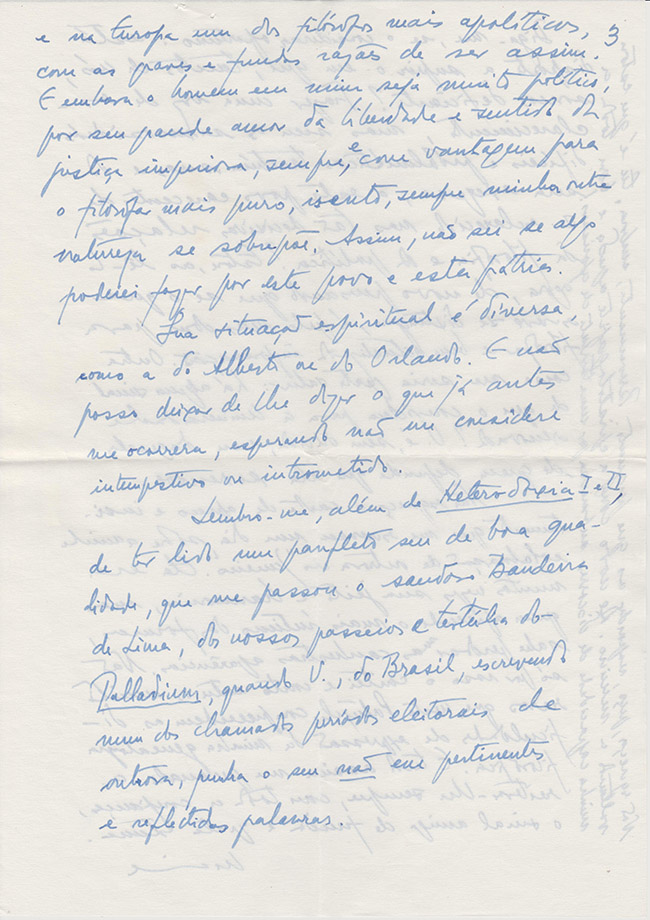 3
e na Europa um dos filósofos mais apolíticos,
com as graves e fundas razões de ser assim.
E embora o homem em mim seja muito político,
por seu grande amor da liberdade e sentido da
justiça imperiosa, sempre, e com vantagem para
o filósofo mais puro, isento, sempre minha outra
natureza se sobrepõe. Assim, não sei se algo
poderei fazer por este povo e esta pátria.
Sua situação espiritual é diversa,
como a do Alberto ou do Orlando. E não
posso deixar de lhe dizer o que já antes
me ocorrera, esperando não me considere
intempestivo ou intrometido.
Lembro-me, além de Heterodoxia I e II,
de ter lido um panfleto seu de boa qua-
lidade, que me passou o saudoso Bandeira
de Lima, dos nossos passeios e tertúlia do
Palladium, quando V., do Brasil escrevendo
num dos chamados períodos eleitorais de
outrora, punha o seu não em pertinentes
e reflectidas palavras.